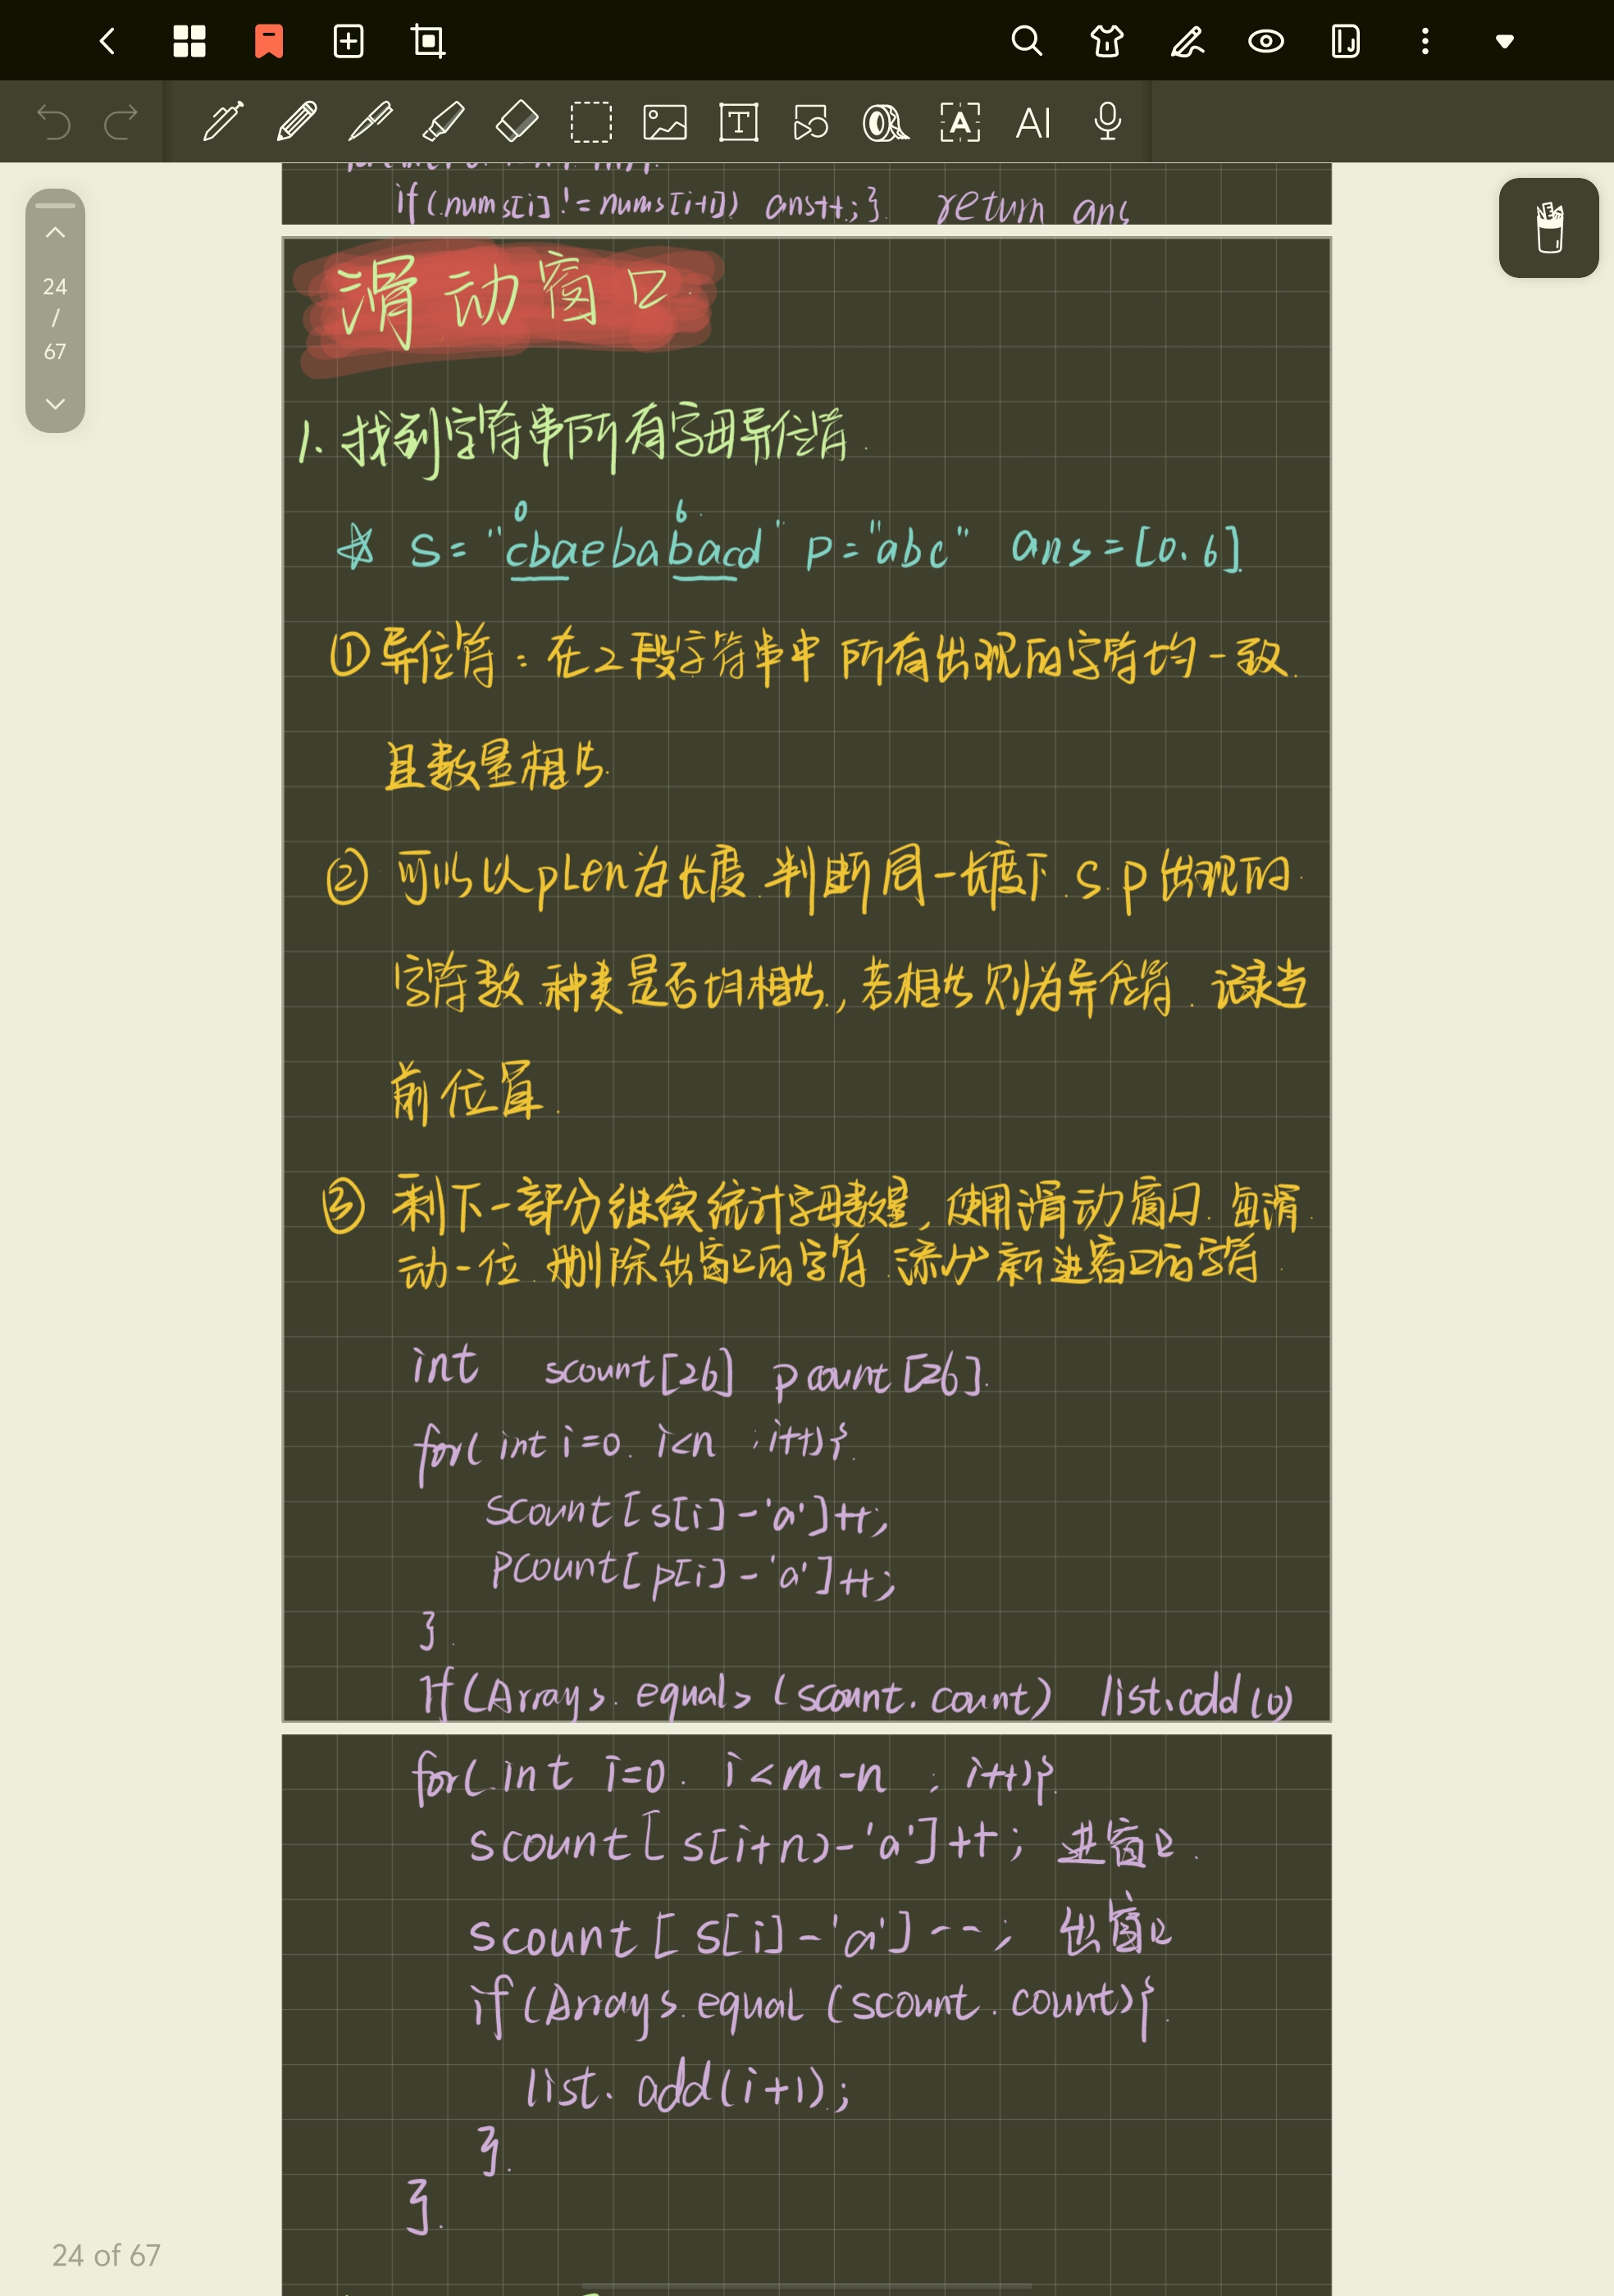 24
/
67
if(nums[i] != nums[i+1]) ans++;} return ans
滑动窗口
1. 找到字符串所有字母异位符.
0 6
☆ s = "cbaebabacd" p = "abc" ans = [0.6]
① 异位符:在2段字符串中 所有出现的字符均一致.
且数量相等.
② 可以以pLen为长度.判断同一长度下.s.p出现的
字符数.种类是否均相等,若相等则为异位符.记录当
前位置.
③ 剩下一部分继续统计字母数量,使用滑动窗口.每滑
动一位.删除出窗口的字符.添加新进窗口的字符.
int scount[26] pcount[26].
for( int i=0. i<n ; i++){
scount[s[i]-'a']++;
pcount[p[i]-'a']++;
}
if(Arrays.equals(scount.count) list.add(0)
for(int i=0. i<m-n ; i++){
scount[s[i+n)-'a']++; 进窗口.
scount[s[i]-'a']--; 出窗口
if(Arrays.equal(scount.count){
list.add(i+1);
}.
}.
24 of 67